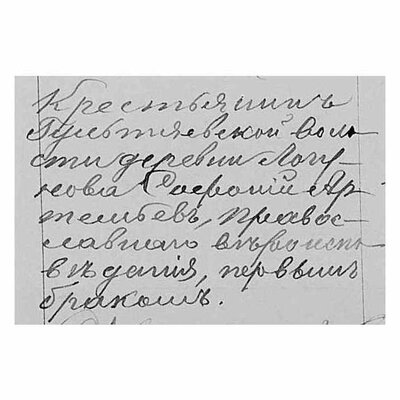 Крестьянинъ
Пустыевской воло-
сти деревни Логу-
нова Софроній Ар-
темьевъ, правос-
лавнаго вѣроиспо-
вѣданія, первымъ
бракомъ.